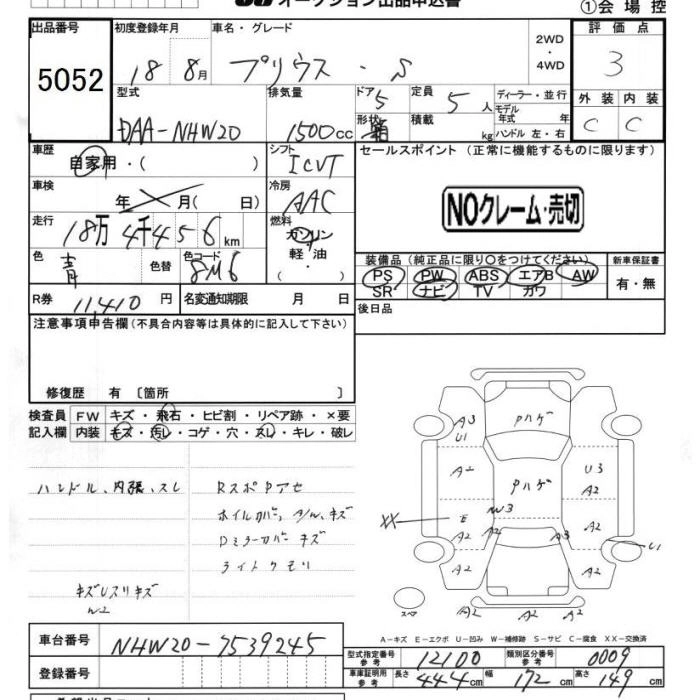 オークション出品申込書
①会場控
出品番号 初度登録年月 車名・グレード 2WD・4WD 評価点
5052 18 8月 プリウス・S 3
型式 排気量 ドア 5 定員 5人 ディーラー・並行 外装 内装
DAA-NHW20 1500cc 形状 積載 kg モデル年式 年 ハンドル 左・右 C C
車歴 自家用・( ) シフト ICVT セールスポイント (正常に機能するものに限ります)
車検 年 月( 日) 冷房 AAC
NOクレーム・売切
走行 18万4千456km 燃料 ガソリン 軽・油 ( )
色 青 色替 色コード 8M6
装備品(純正品に限り○をつけてください) 新車保証書
PS PW ABS エアB AW 有・無
SR ナビ TV カワ
R券 11,410円 名変通知期限 月 日 後日品
注意事項申告欄(不具合内容等は具体的に記入して下さい)
修復歴 有 〔箇所 〕
検査員 FW キズ・飛石・ヒビ割・リペア跡・×要
記入欄 内装 キズ・汚レ・コゲ・穴・スレ・キレ・破レ
ハンドル、内張、スレ RスポPアセ
ホイルカバー、A/W、キズ
Dミラーカバー キズ
ライトクモリ
キズUスリキズ
W2
A3 Pハゲ
U1
A2 Pハゲ U3
A2
XX E W3 A2
A2 A2 A3 U1
A2 A2
スペア A2 A2 A2
A-キズ E-エクボ U-凹み W-補修跡 S-サビ C-腐食 XX-交換済
車台番号 NHW20-7539245
型式指定番号 参考 12100 類別区分番号 参考 0009
登録番号 車庫証明用 参考 長さ 444cm 幅 172cm 高さ 149cm